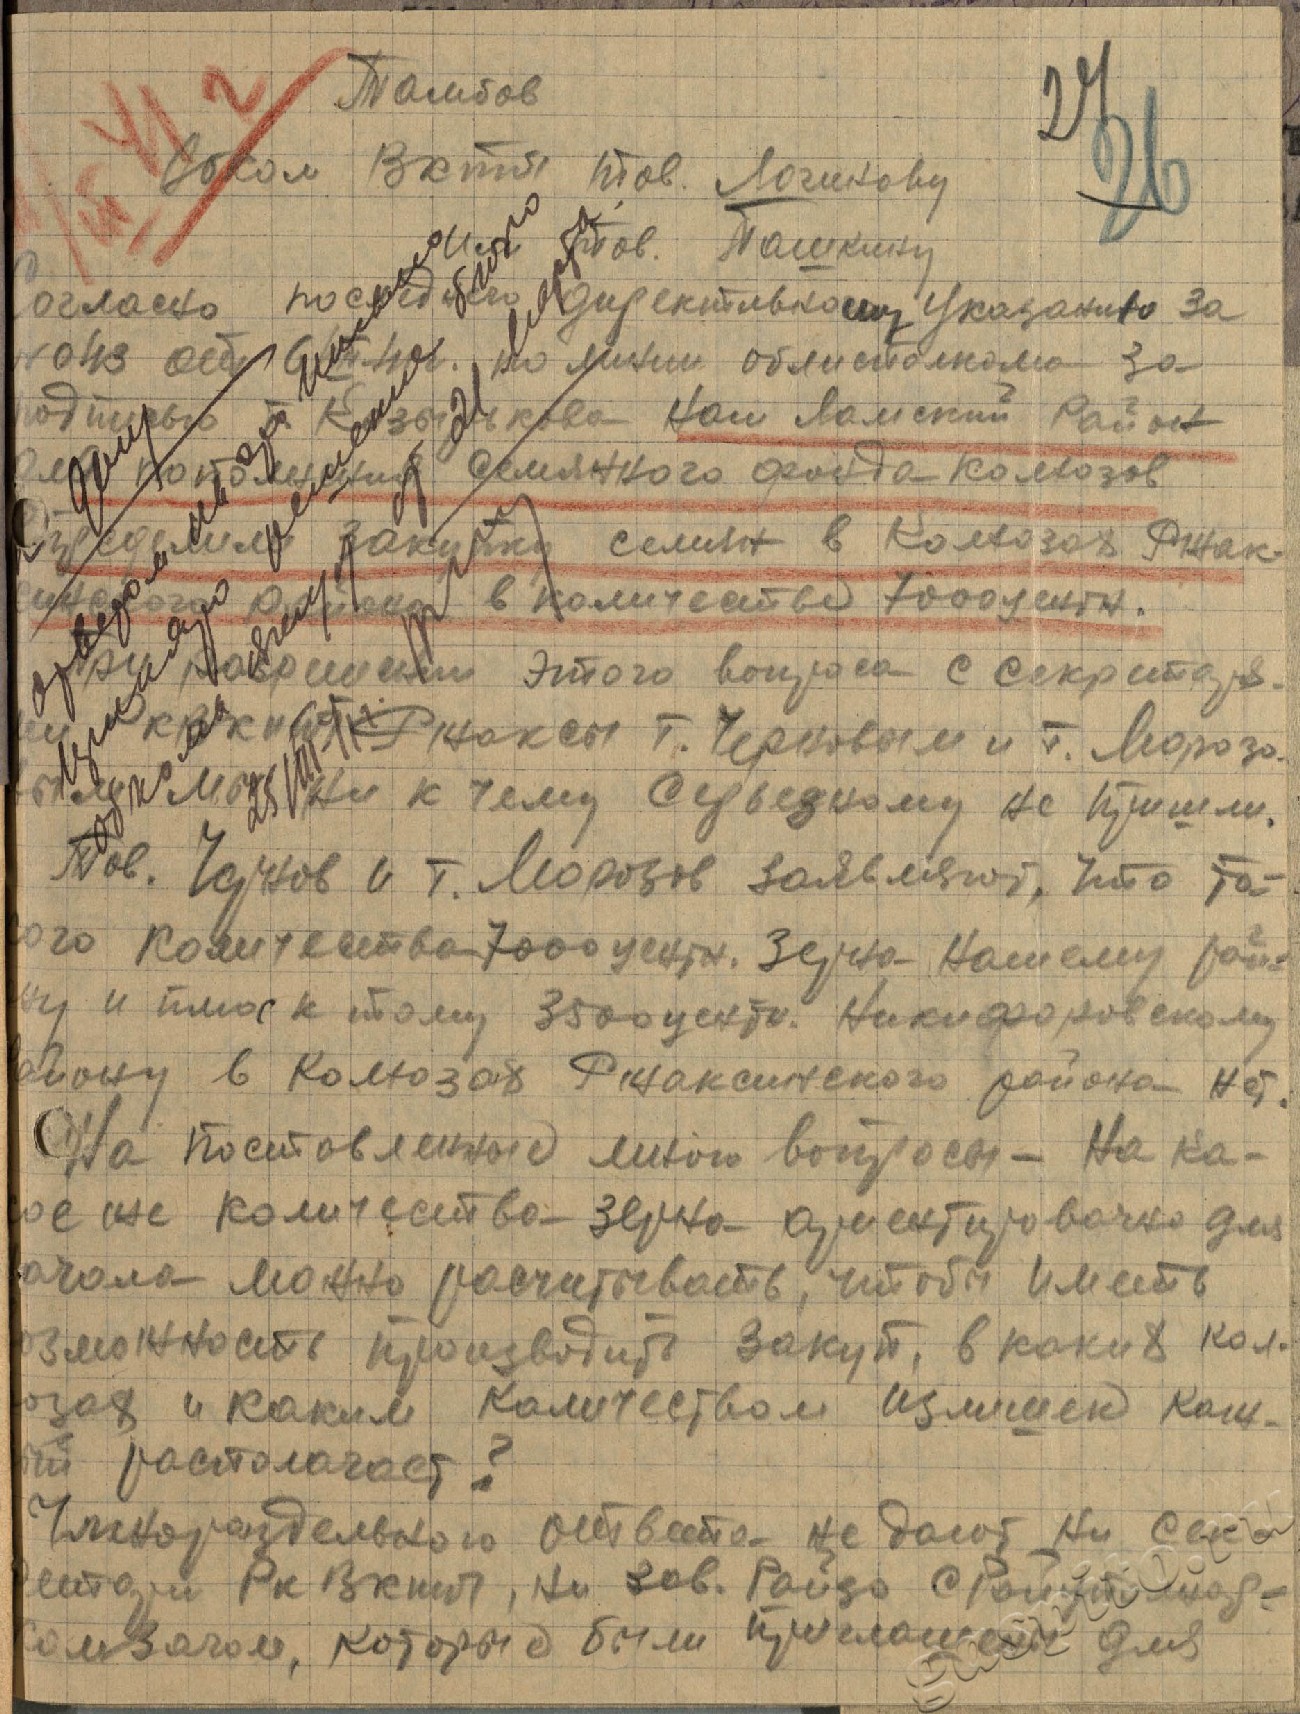 27
26
Тамбов
Обком ВКПб тов. Логинову
и тов. Ташкину
Согласно последнего директивному указанию за
№ 043 от по линии облисполкома за
подписью т Козырькова наш Ламский Район
для пополнения семянного фонда колхозов
определили закупку семян в Колхозах Ржак-
синского района в количестве 7000 центн.
При разрешении этого вопроса с секретаря-
ми Ржаксы т. Черновым и т. Морозо-
вым мы ни к чему серьезному не пришли.
Тов. Чернов и т. Морозов заявляют, что та-
кого количества 7000 центн. зерна нашему рай-
ну и плюс к тому 3500 центн. Никифоровскому
району в Колхозах Ржаксинского района нет.
На поставленные мною вопросы – На ка-
кое же количества зерна ориентировочно для
начала можно расчитывать, чтобы иметь
возможность производить закуп, в каких кол-
хозах и каким количеством излишек каж-
дый располагает?
Членораздельного ответа не дают ни сек-
ретари Рк ВКПб, ни зав. Райзо с Райуполнар-
комзагом, которые были приглашены для
25/VIII-41